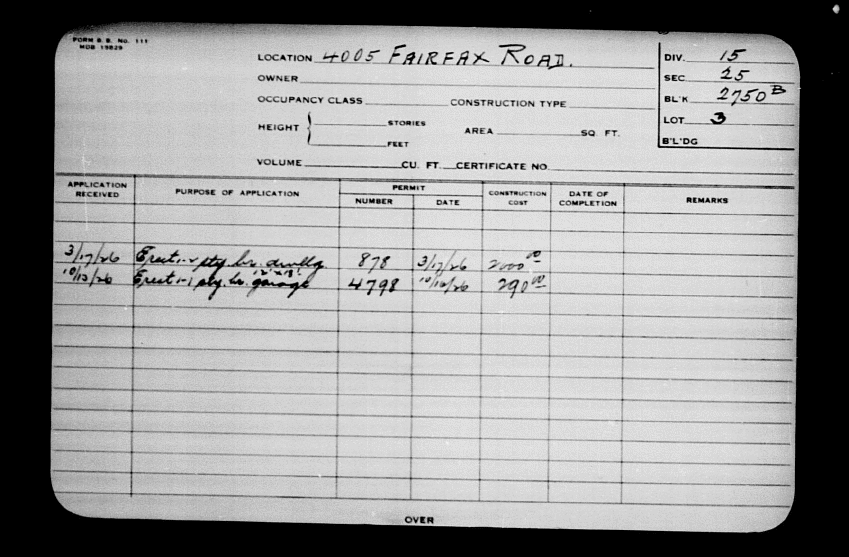 FORM B. B. No. 111
MDB 19829
LOCATION 4005 FAIRFAX ROAD.
OWNER
OCCUPANCY CLASS CONSTRUCTION TYPE
HEIGHT { STORIES
FEET
AREA SQ. FT.
VOLUME CU. FT. CERTIFICATE NO.
DIV. 15
SEC 25
BL'K 2750 B
LOT 3
B'L'DG
APPLICATION RECEIVED PURPOSE OF APPLICATION PERMIT NUMBER DATE CONSTRUCTION COST DATE OF COMPLETION REMARKS
3/17/26 Erect 1-2 sty. br. dwellg 878 3/17/26 2000 00
10/12/26 Erect 1-1 sty. br. 12' x 18' garage 4798 290 00
OVER